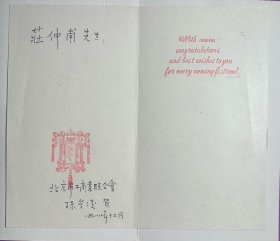 莊仲甫先生
With warm
congratulations
and best wishes to you
for every coming festival!
北京市工商業聯合會
孫孚凌 賀
一九八〇年十二月